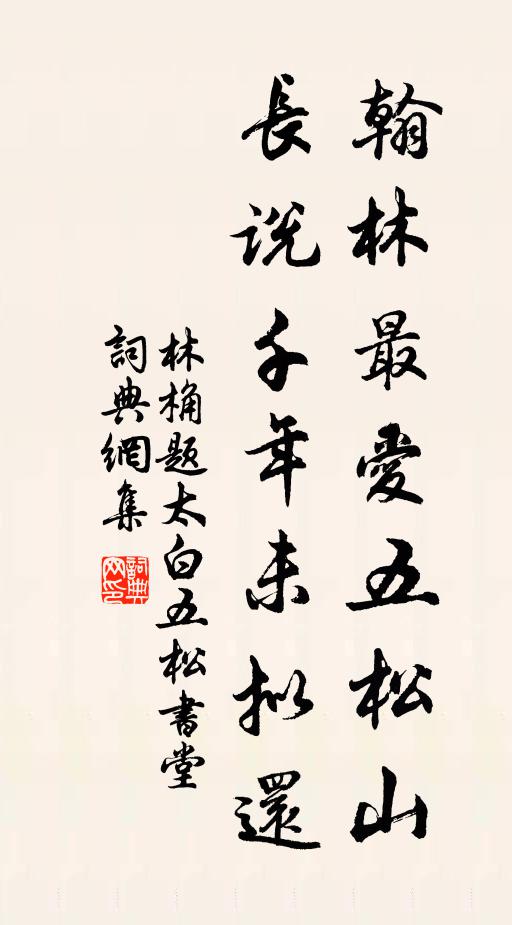 翰林最愛五松山
長説千年未拟還
林桷题太白五松書堂
詞典網集
詞典网印